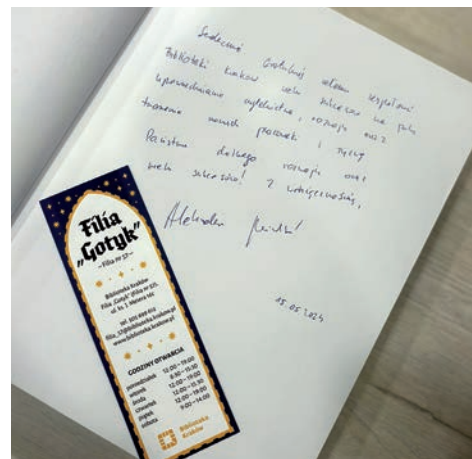 Serdecznie Gratuluję całemu zespołowi
Biblioteki Kraków wielu sukcesów na polu
upowszechniania czytelnictwa, rozwoju oraz
tworzenia nowych placówek i życzę
Państwu dalszego rozwoju oraz
wielu sukcesów! Z wdzięcznością,
15.05.2024
Filia
„Gotyk”
~ Filia nr 57 ~
Biblioteka Kraków
Filia „Gotyk” (Filia nr 57),
www.biblioteka.krakow.pl
GODZINY OTWARCIA
poniedziałek 12:00 – 19:00
wtorek 8:30 – 15:30
środa 12:00 – 19:00
czwartek 12:00 – 15:30
piątek 12:00 – 19:00
sobota 9:00 – 14:00
Biblioteka
Kraków